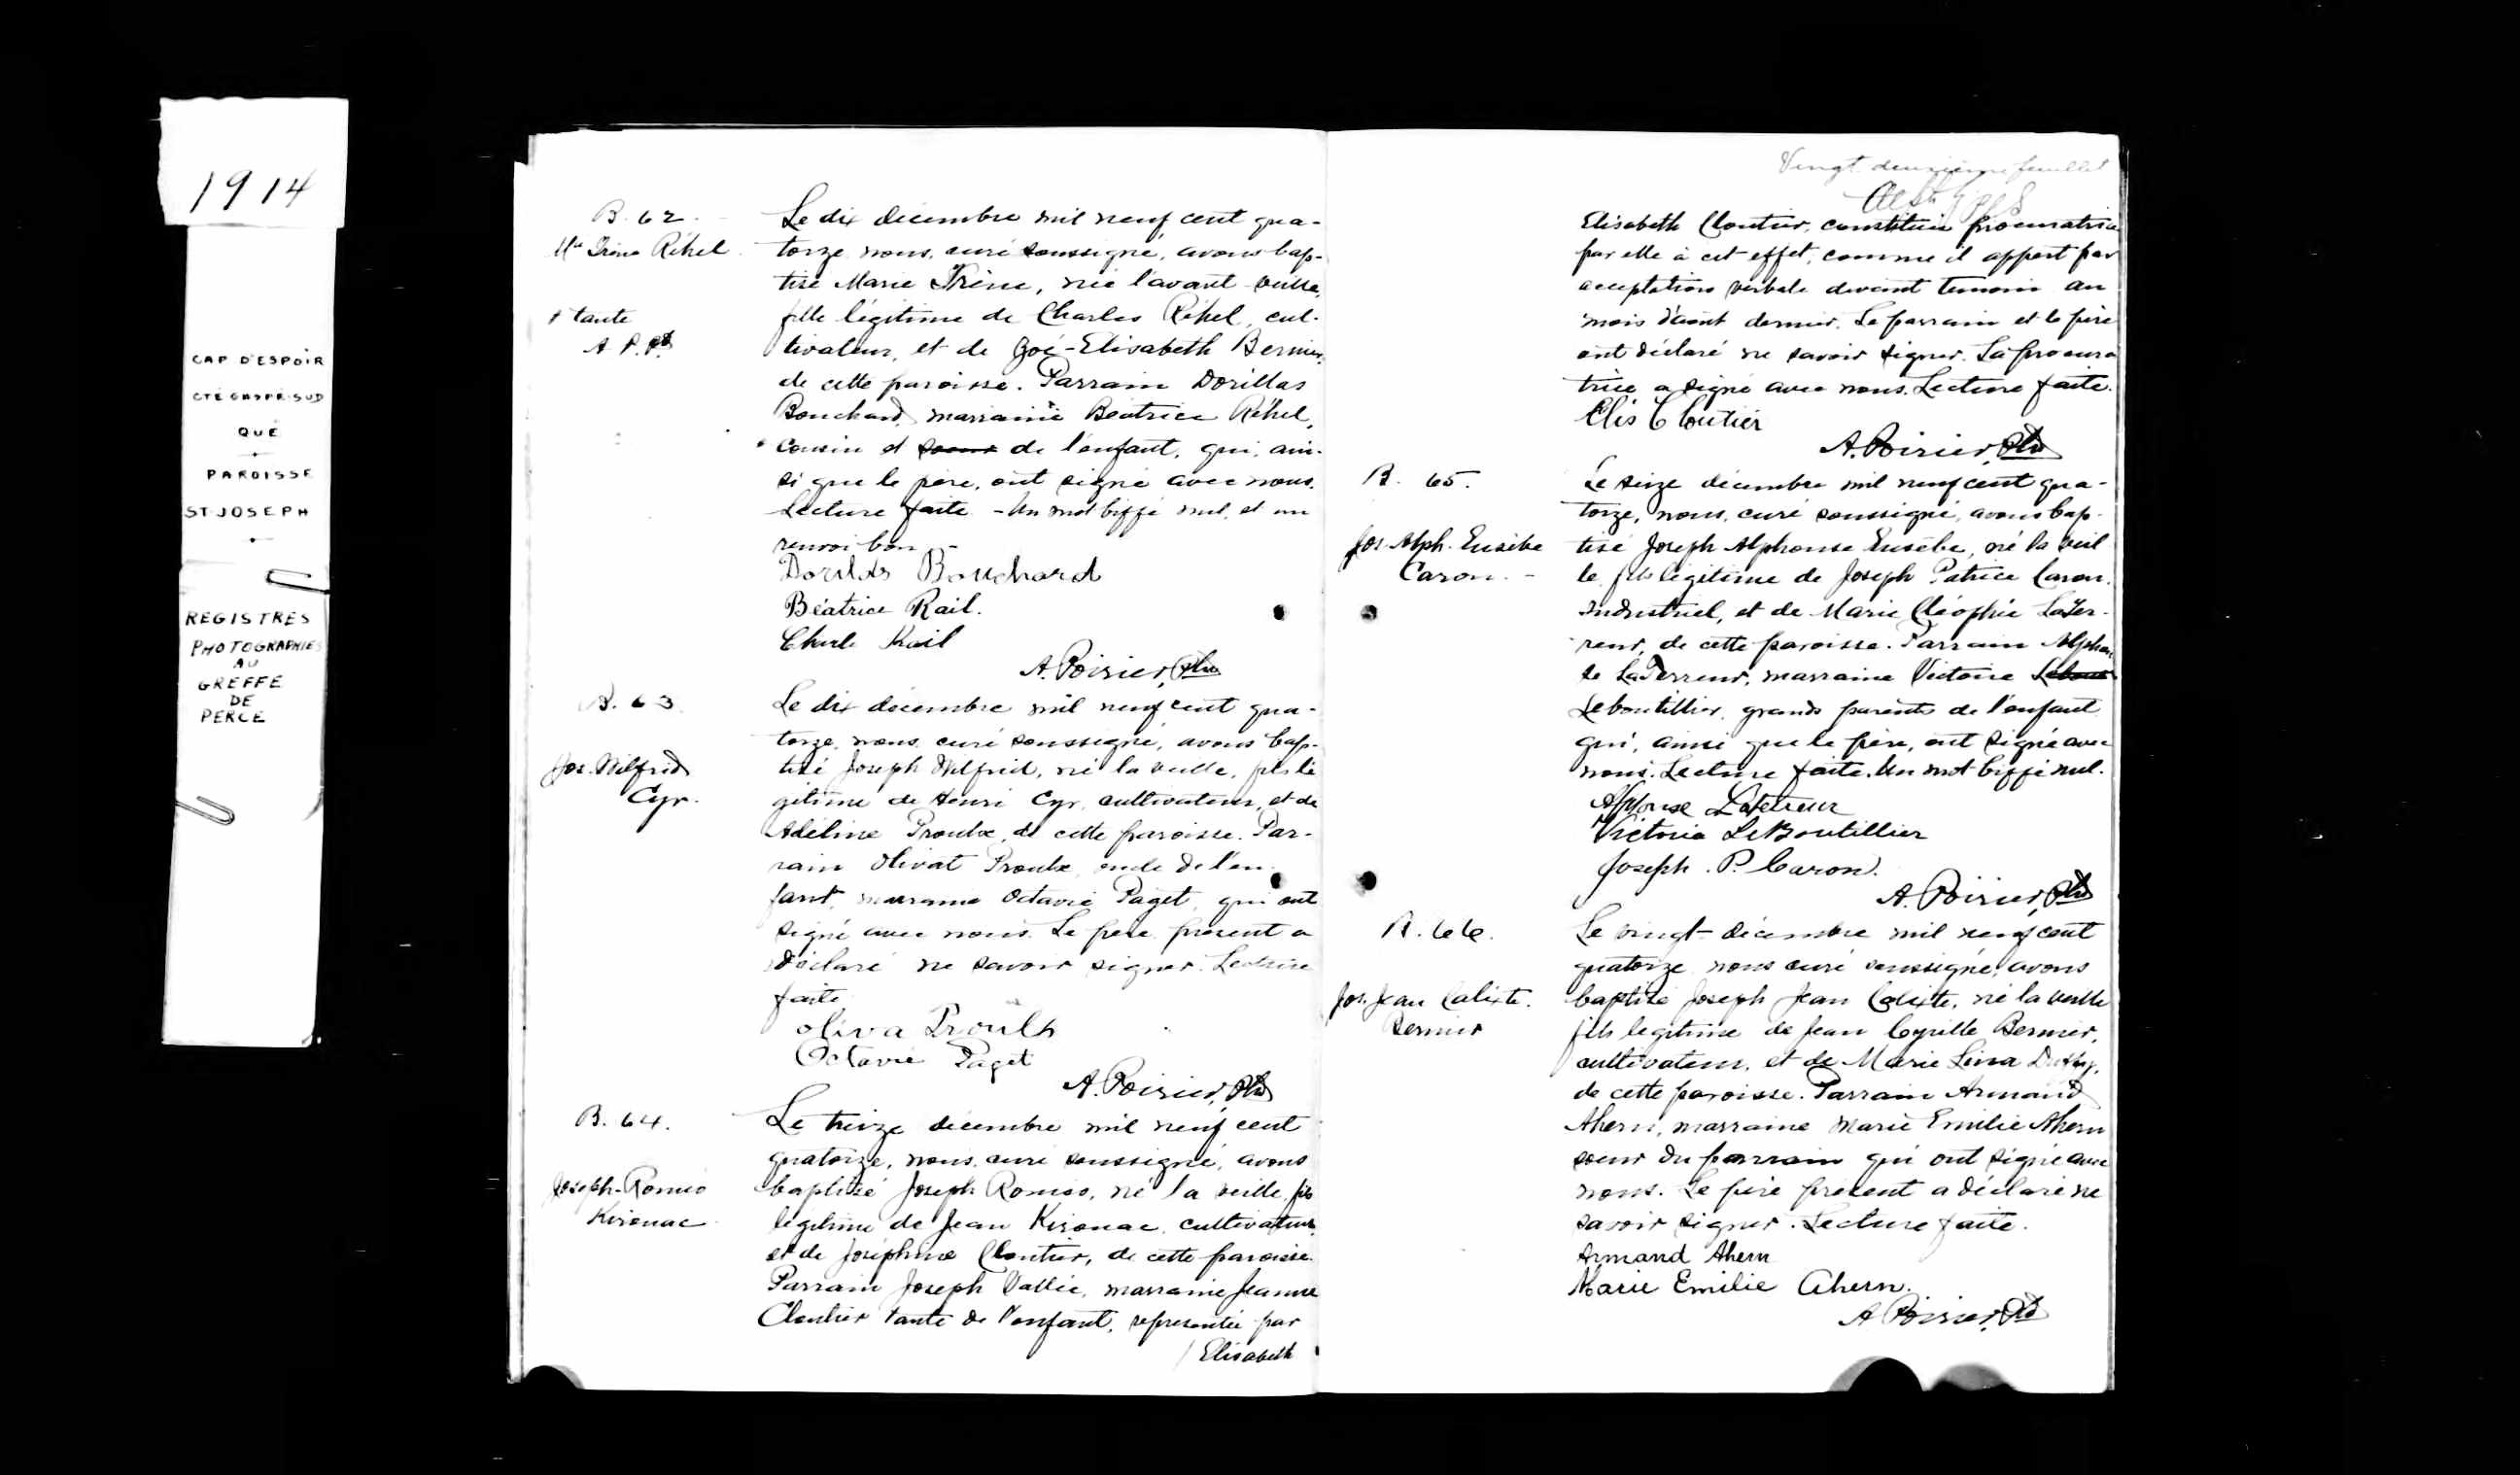 1914
CAP D'ESPOIR
CTÉ GASPÉ-SUD
QUÉ
PAROISSE
ST-JOSEPH
REGISTRES
PHOTOGRAPHIES
AU
GREFFE
DE
PERCÉ
B. 62.
Mie Irène Réhel
+ tante
A. P. Ptre
Le dix décembre mil neuf cent qua-
torze, nous, curé soussigné, avons bap-
tisé Marie Irène, née l'avant-veille,
fille légitime de Charles Réhel, cul-
tivateur, et de Zoé-Elisabeth Bernier,
de cette paroisse. Parrain Dorillas
Bouchard, marraine Béatrice Réhel,
+ cousin et soeur de l'enfant, qui, ain-
si que le père, ont signé avec nous.
Lecture faite - Un mot biffé nul, et un
renvoi bon -
Dorilas Bouchard
Béatrice Rail.
Charle Rail
A. Poirier, Ptre
B. 63.
Jos. Wilfrid
Cyr.
Le dix décembre mil neuf cent qua-
torze, nous, curé soussigné, avons bap-
tisé Joseph Wilfrid, né la veille, fils lé
gitime de Henri Cyr, cultivateur, et de
Adéline Proulx, de cette paroisse. Par-
rain Olivat Proulx, oncle de l'en-
fant, marraine Octavie Paget, qui ont
signé avec nous. Le père présent a
déclaré ne savoir signer. Lecture
faite
Oliva Proulx
Octavie Paget
A. Poirier, Ptre
B. 64.
Joseph-Roméo
Kironac
Le treize décembre mil neuf cent
quatorze, nous, curé soussigné, avons
baptisé Joseph Roméo, né la veille, fils
légitime de Jean Kironac, cultivateur,
et de Joséphine Cloutier, de cette paroisse.
Parrain Joseph Vallée, marraine Jeanne
Cloutier tante de l'enfant, représentée par
/ Elisabeth
Vingt deuxième feuillet
Elisabeth Cloutier, constituée procuratrice
par elle à cet effet, comme il appert par
acceptation verbale devant temoin au
mois d'août dernier. Le parrain et le père
ont déclaré ne savoir signer. La procura
trice a signé avec nous. Lecture faite.
Elis Cloutier
A. Poirier, Ptre
B. 65.
Jos. Alph. Eusèbe
Caron. -
Le seize décembre mil neuf cent qua-
torze, nous, curé soussigné, avons bap-
tisé Joseph Alphonse Eusèbe, né la veil
le, fils légitime de Joseph Patrice Caron,
industriel, et de Marie Cléophée LaTer-
reur, de cette paroisse. Parrain Alphon
se LaTerreur, marraine Victoire
Leboutillier, grands parents de l'enfant
qui, ainsi que le père, ont signé avec
nous. Lecture faite. Un mot biffé nul.
Alphonse Laterreur
Victoria LeBoutillier
Joseph. P. Caron.
A. Poirier, Ptre
B. 66.
Jos. Jean Calixte.
Bernier
Le vingt décembre mil neuf cent
quatorze nous curé soussigné, avons
baptisé Joseph Jean Calixte, né la veille
fils légitime de Jean Cyrille Bernier,
cultivateur, et de Marie Lina
de cette paroisse. Parrain Armand
Ahern, marraine Marie Emilie Ahern
soeur du parrain qui ont signé avec
nous. Le père présent a déclaré ne
savoir signer. Lecture faite.
Armand Ahern
Marie Emilie Ahern.
A Poirier, Ptre